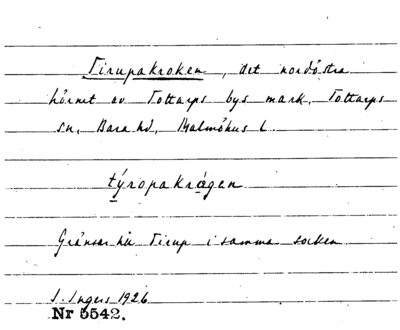 Tirupakroken, det nordöstra
hörnet av Tottarps bys mark, Tottarps
sn, Bara hd, Malmöhus l.
týropakrágen
Gränsar till Tirup i samma socken
I. Ingers 1926
Nr 5542.